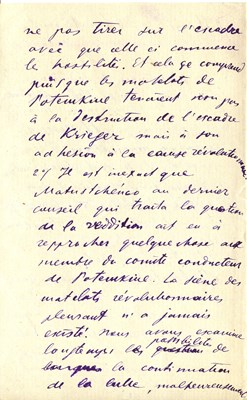 ne pas tirer sur l'escadre
avec que celle ci commence
les hostilités. Et cela se comprend
puisque les matelots de
Potemkine tenaient non pas
à la destruction de l'escadre
de Krieger mais à son
adhesion à la cause révolutionnaire
2) Il est inexact que
Matustchenco au dernier
conseil qui traita la question
de la reddition ait eu à
reprocher quelque chose aux
membre du comite conducteur
de Potemkine. La scène des
matelots révolutionnaires
pleurant n'a jamais
existé. Nous avons examiné
possibilité
longtemps la question de
la continuation
de la lutte, malheureusement